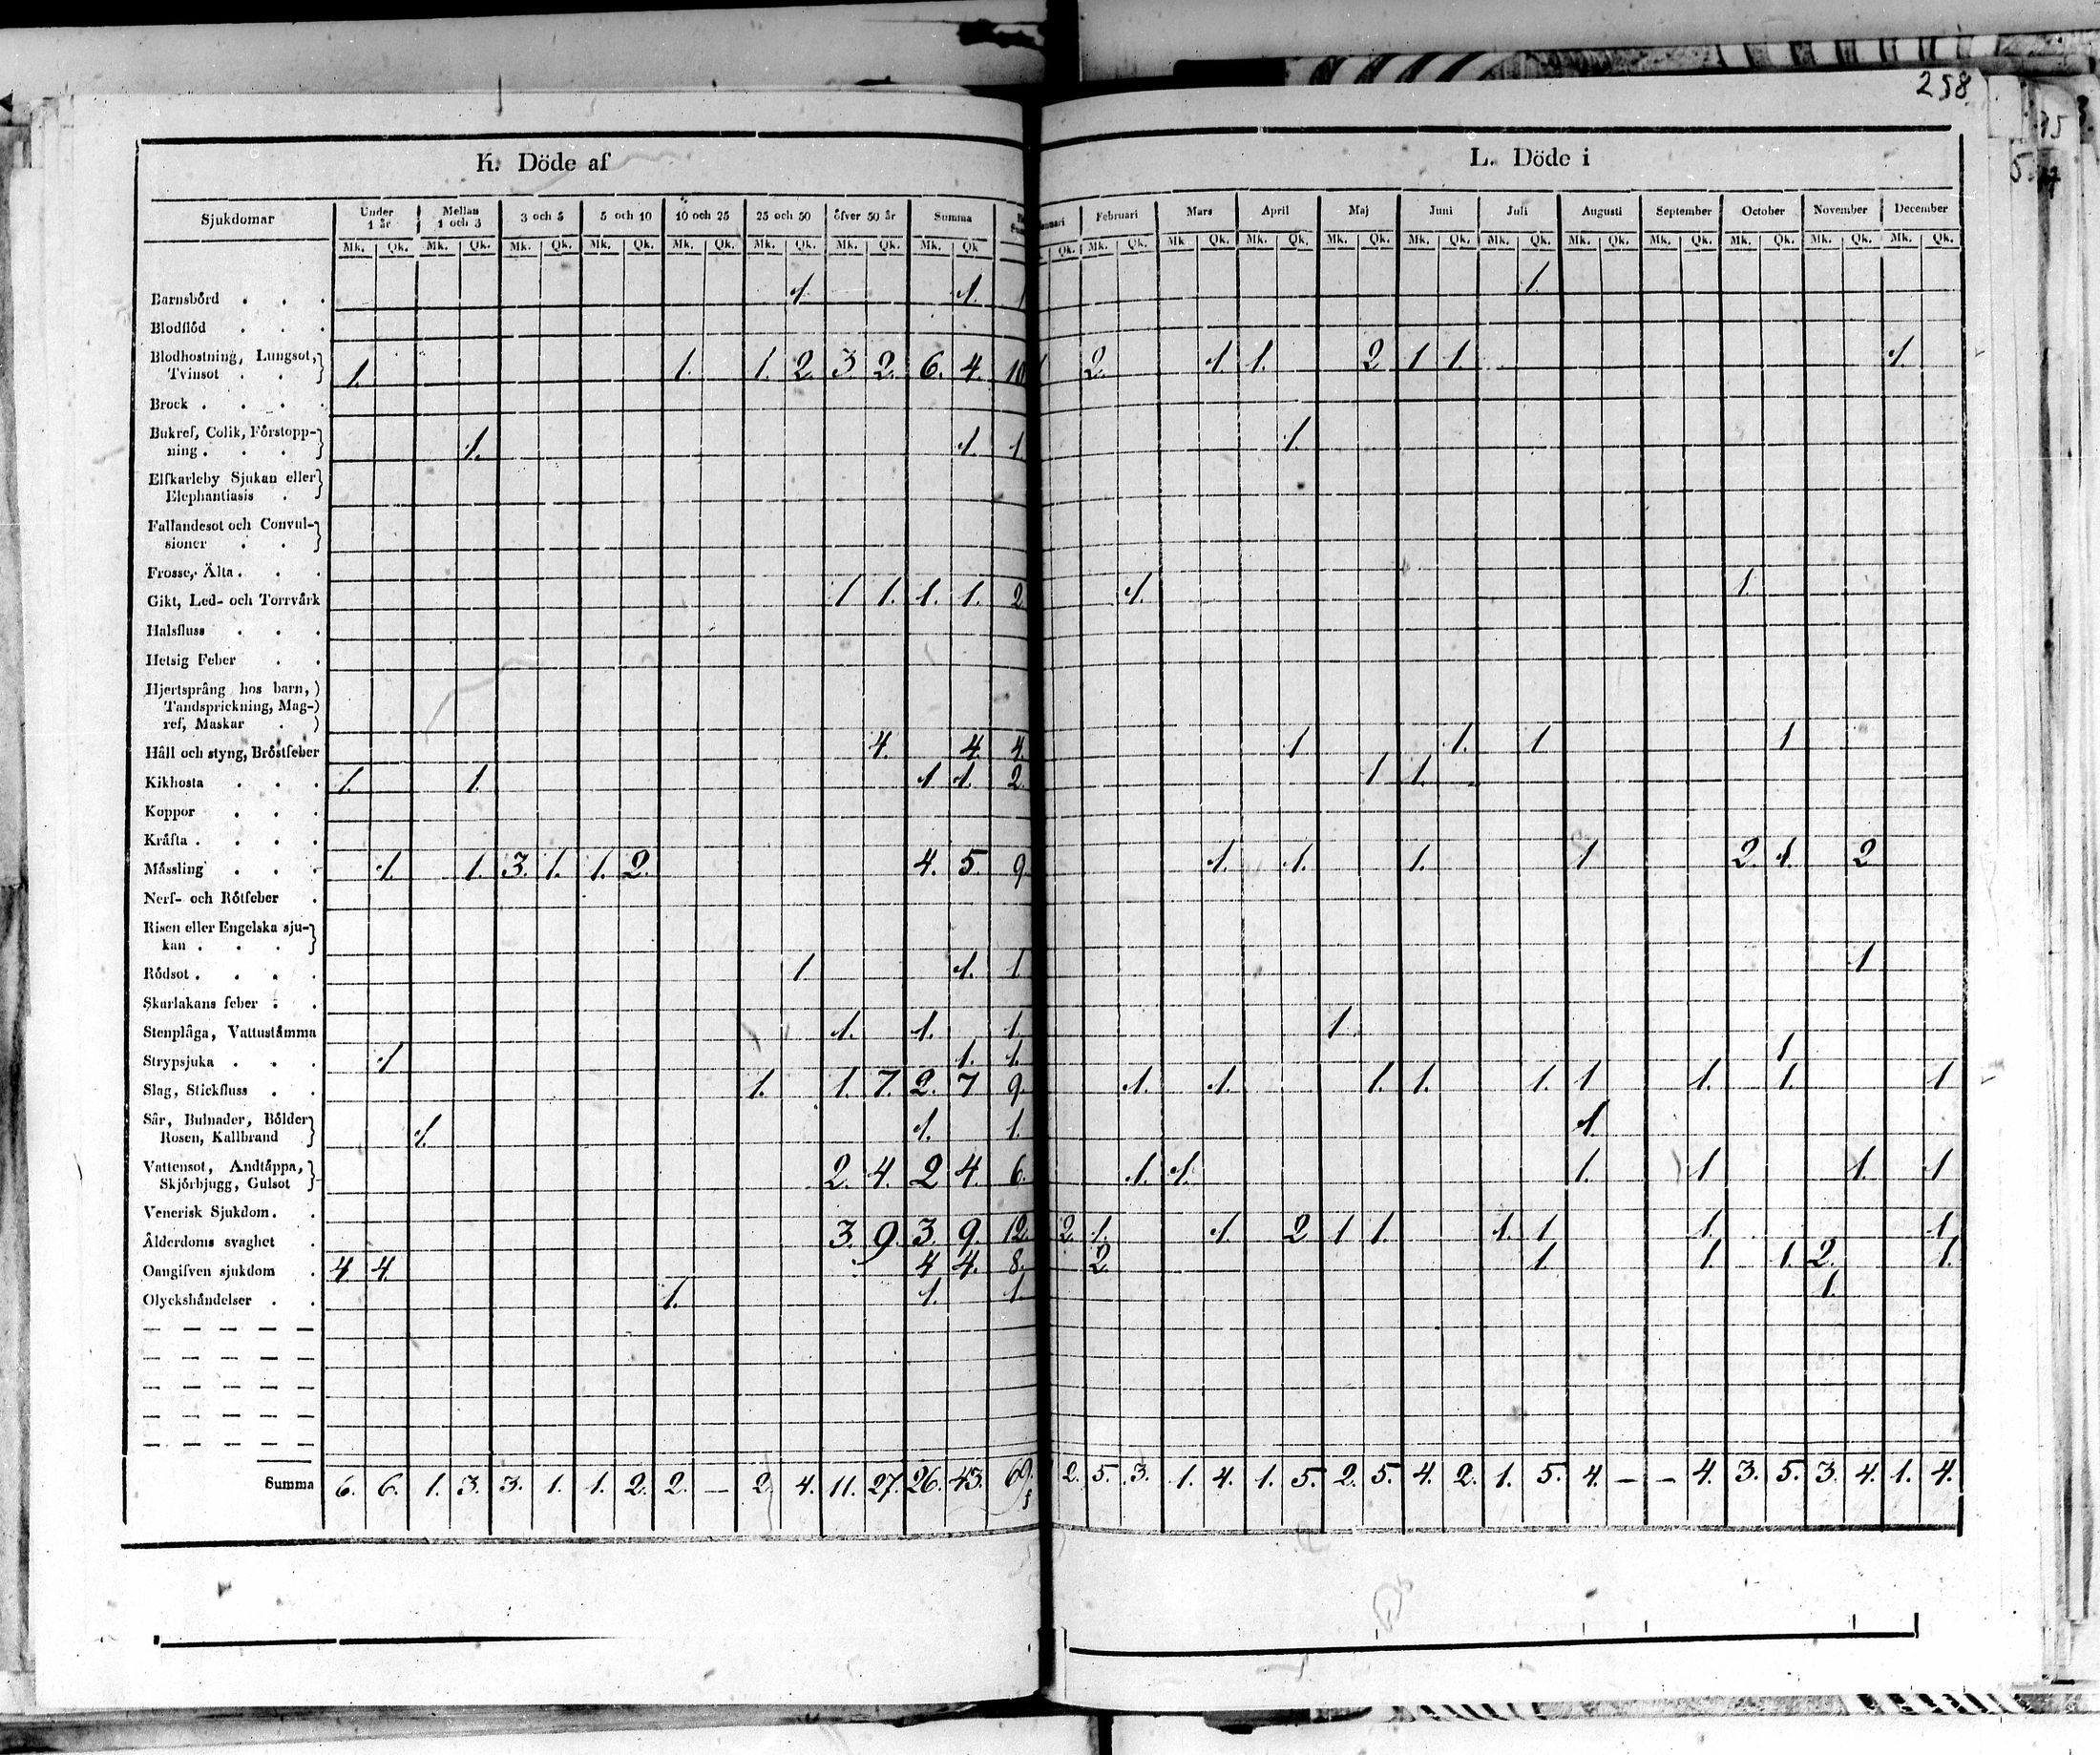 258
K. Döde af
Sjukdomar | Under 1 år | Mellan 1 och 3 | 3 och 5 | 5 och 10 | 10 och 25 | 25 och 50 | öfver 50 år | Summa
Mk. Qk. Mk. Qk. Mk. Qk. Mk. Qk. Mk. Qk. Mk. Qk. Mk. Qk. Mk. Qk
Barnsbörd . . . 1. 1. 1
Blodflöd . . .
Blodhostning, Lungsot,
Tvinsot . . 1. 1. 1. 2. 3. 2. 6. 4. 10
Brock . . . .
Bukref, Colik, Förstopp-
ning . . . 1. 1. 1.
Elfkarleby Sjukan eller
Elephantiasis .
Fallandesot och Convul-
sioner . .
Frosse, Älta . . .
Gikt, Led- och Torrvärk 1 1. 1. 1. 2
Halsfluss . . .
Hetsig Feber . .
Hjertsprång hos barn,
Tandsprickning, Mag-
ref, Maskar .
Håll och styng, Bröstfeber 4. 4. 4.
Kikhosta . . . 1. 1. 1 1. 2.
Koppor . . .
Kräfta . . . .
Måssling . . . 1. 1. 3. 1. 1. 2. 4. 5. 9.
Nerf- och Rötfeber .
Risen eller Engelska sju-
kan . . .
Rödsot . . . . 1 1. 1
Skarlakans feber . .
Stenplåga, Vattustämma 1. 1. 1.
Strypsjuka . . . 1 1. 1.
Slag, Stickfluss . . 1. 1. 7. 2. 7 9.
Sår, Bulnader, Bölder
Rosen, Kallbrand 1. 1. 1.
Vattensot, Andtäppa,
Skjörbjugg, Gulsot 2. 4. 2 4. 6.
Venerisk Sjukdom . .
Ålderdoms svaghet . 3. 9. 3. 9. 12.
Oangifven sjukdom . 4 4 4 4. 8.
Olyckshändelser . . 1. 1. 1.
Summa 6. 6. 1. 3. 3. 1. 1. 2. 2. — 2. 4. 11. 27. 26. 43. 69.
L. Döde i
Februari | Mars | April | Maj | Juni | Juli | Augusti | September | October | November | December
Qk. Mk. Qk. Mk. Qk. Mk. Qk. Mk. Qk. Mk. Qk. Mk. Qk. Mk. Qk. Mk. Qk. Mk. Qk. Mk. Qk. Mk. Qk.
1.
2. 1 1. 2 1 1. 1.
1.
1. 1.
1 1. 1 1
1 1.
1. 1. 1. 1 2. 1. 2
1
1
1
1. 1. 1. 1. 1. 1 1. 1. 1
1.
1. 1. 1. 1 1. 1
2. 1. 1 2 1 1. 1. 1 1. 1.
2. 1. 1. 1. 2. 1.
1.
2. 5. 3. 1. 4. 1. 5. 2. 5. 4. 2. 1. 5. 4. — — 4. 3. 5. 3. 4. 1. 4.